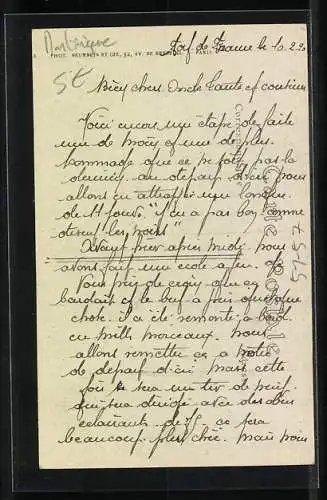 Martinique
PHOT. NEURDEIN ET CIE, 52, AV. DE PARIS
Fort de France le 10.2.20
5€
Bien chers Oncle Tante et cousine
Voici encore une étape de faite
une de moins et une de plus
dommage que ce ne soit pas la
dernière au départ d'ici nous
allons en attraper une longue
de 11 jours "il y a pas bon comme
disent les noirs"
Avant hier après midi nous
avons fait une école à feu.
Vous que ça
bardait et le but a pris quelque
chose. il a été remonté à bord
en mille morceaux. nous
allons remettre ça à notre
départ d'ici mais cette
fois ce sera un tir de nuit
qui sera dirigé avec des obus
éclairants de 75 ce sera
beaucoup plus chic. mais nous
Carte postale
Correspondance
5157